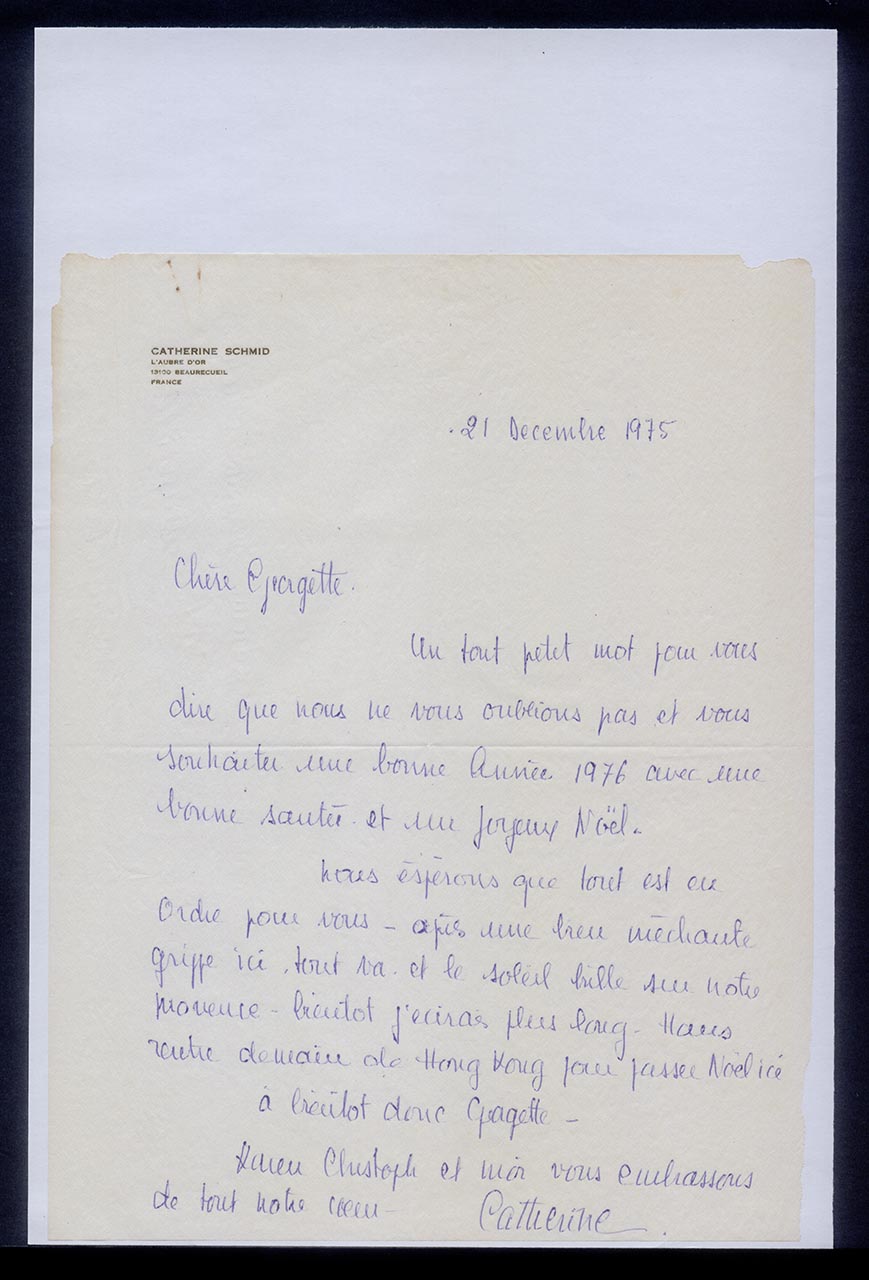 CATHERINE SCHMID
L'AUBRE D'OR
13100 BEAURECUEIL
FRANCE
21 Decembre 1975
Chère Georgette.
Un tout petit mot pour vous
dire que nous ne vous oublions pas et vous
souhaiter une bonne Année 1976 avec une
bonne santée. et un Joyeux Noël.
nous éspérons que tout est en
Ordre pour vous - après une bien méchante
grippe ici. tout va. et le soleil brille sur notre
provence - bientot j'ecirais plus long. Hans
rentre demain de Hong Kong pour passer Noël ici
à bientot donc Georgette -
Karen Christoph et moi vous embrassons
de tout notre coeur -
Catherine